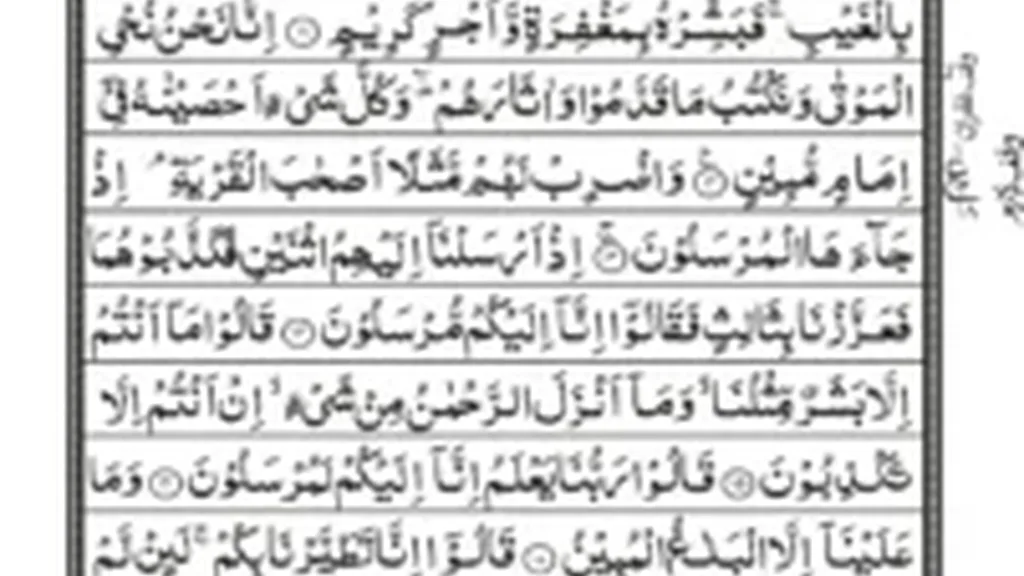 بِالْغَيْبِ ۚ فَبَشِّرْهُ بِمَغْفِرَةٍ وَّاَجْرٍ كَرِيْمٍ ۝ اِنَّا نَحْنُ نُحْيِ
الْمَوْتٰى وَنَكْتُبُ مَا قَدَّمُوْا وَاٰثَارَهُمْ ۚ وَكُلَّ شَىْءٍ اَحْصَيْنٰهُ فِىْٓ
اِمَامٍ مُّبِيْنٍ ۝ وَاضْرِبْ لَهُمْ مَّثَلًا اَصْحٰبَ الْقَرْيَةِ ۘ اِذْ
جَآءَهَا الْمُرْسَلُوْنَ ۝ اِذْ اَرْسَلْنَآ اِلَيْهِمُ اثْنَيْنِ فَكَذَّبُوْهُمَا
فَعَزَّزْنَا بِثَالِثٍ فَقَالُوْٓا اِنَّآ اِلَيْكُمْ مُّرْسَلُوْنَ ۝ قَالُوْا مَآ اَنْتُمْ
اِلَّا بَشَرٌ مِّثْلُنَا ۙ وَمَآ اَنْزَلَ الرَّحْمٰنُ مِنْ شَىْءٍ ۙ اِنْ اَنْتُمْ اِلَّا
تَكْذِبُوْنَ ۝ قَالُوْا رَبُّنَا يَعْلَمُ اِنَّآ اِلَيْكُمْ لَمُرْسَلُوْنَ ۝ وَمَا
عَلَيْنَآ اِلَّا الْبَلٰغُ الْمُبِيْنُ ۝ قَالُوْٓا اِنَّا تَطَيَّرْنَا بِكُمْ ۚ لَئِنْ لَّمْ